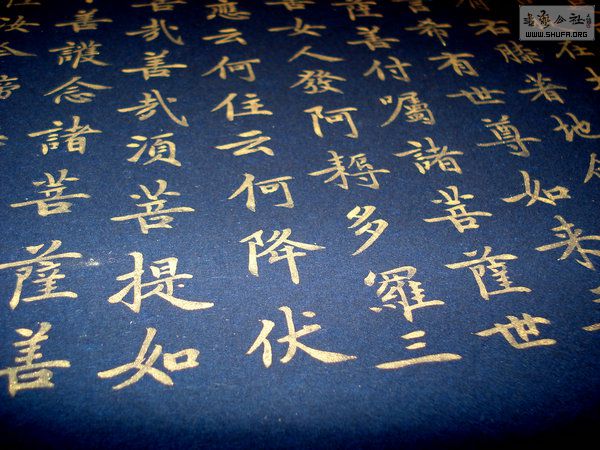 在
右膝著地
希有世尊如来
薩善付囑諸菩薩世
女人發阿耨多羅三
應云何住云何降伏
善哉善哉須菩提如
善護念諸菩薩善
汝今
书法公社
WWW.SHUFA.ORG